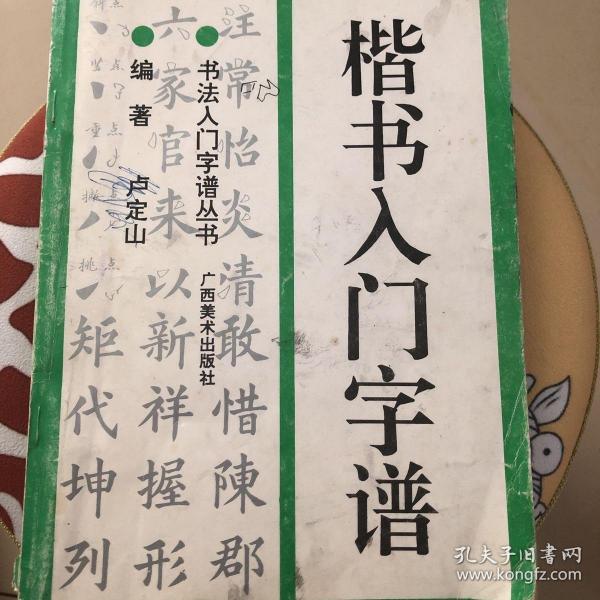 楷书入门字谱
书法入门字谱丛书
广西美术出版社
编著 卢定山
注常怡炎清敢惜陳郡
六家官来以新祥握形
点
点
重点
点
挑点
矩代坤列
孔夫子旧书网
www.kongfz.com